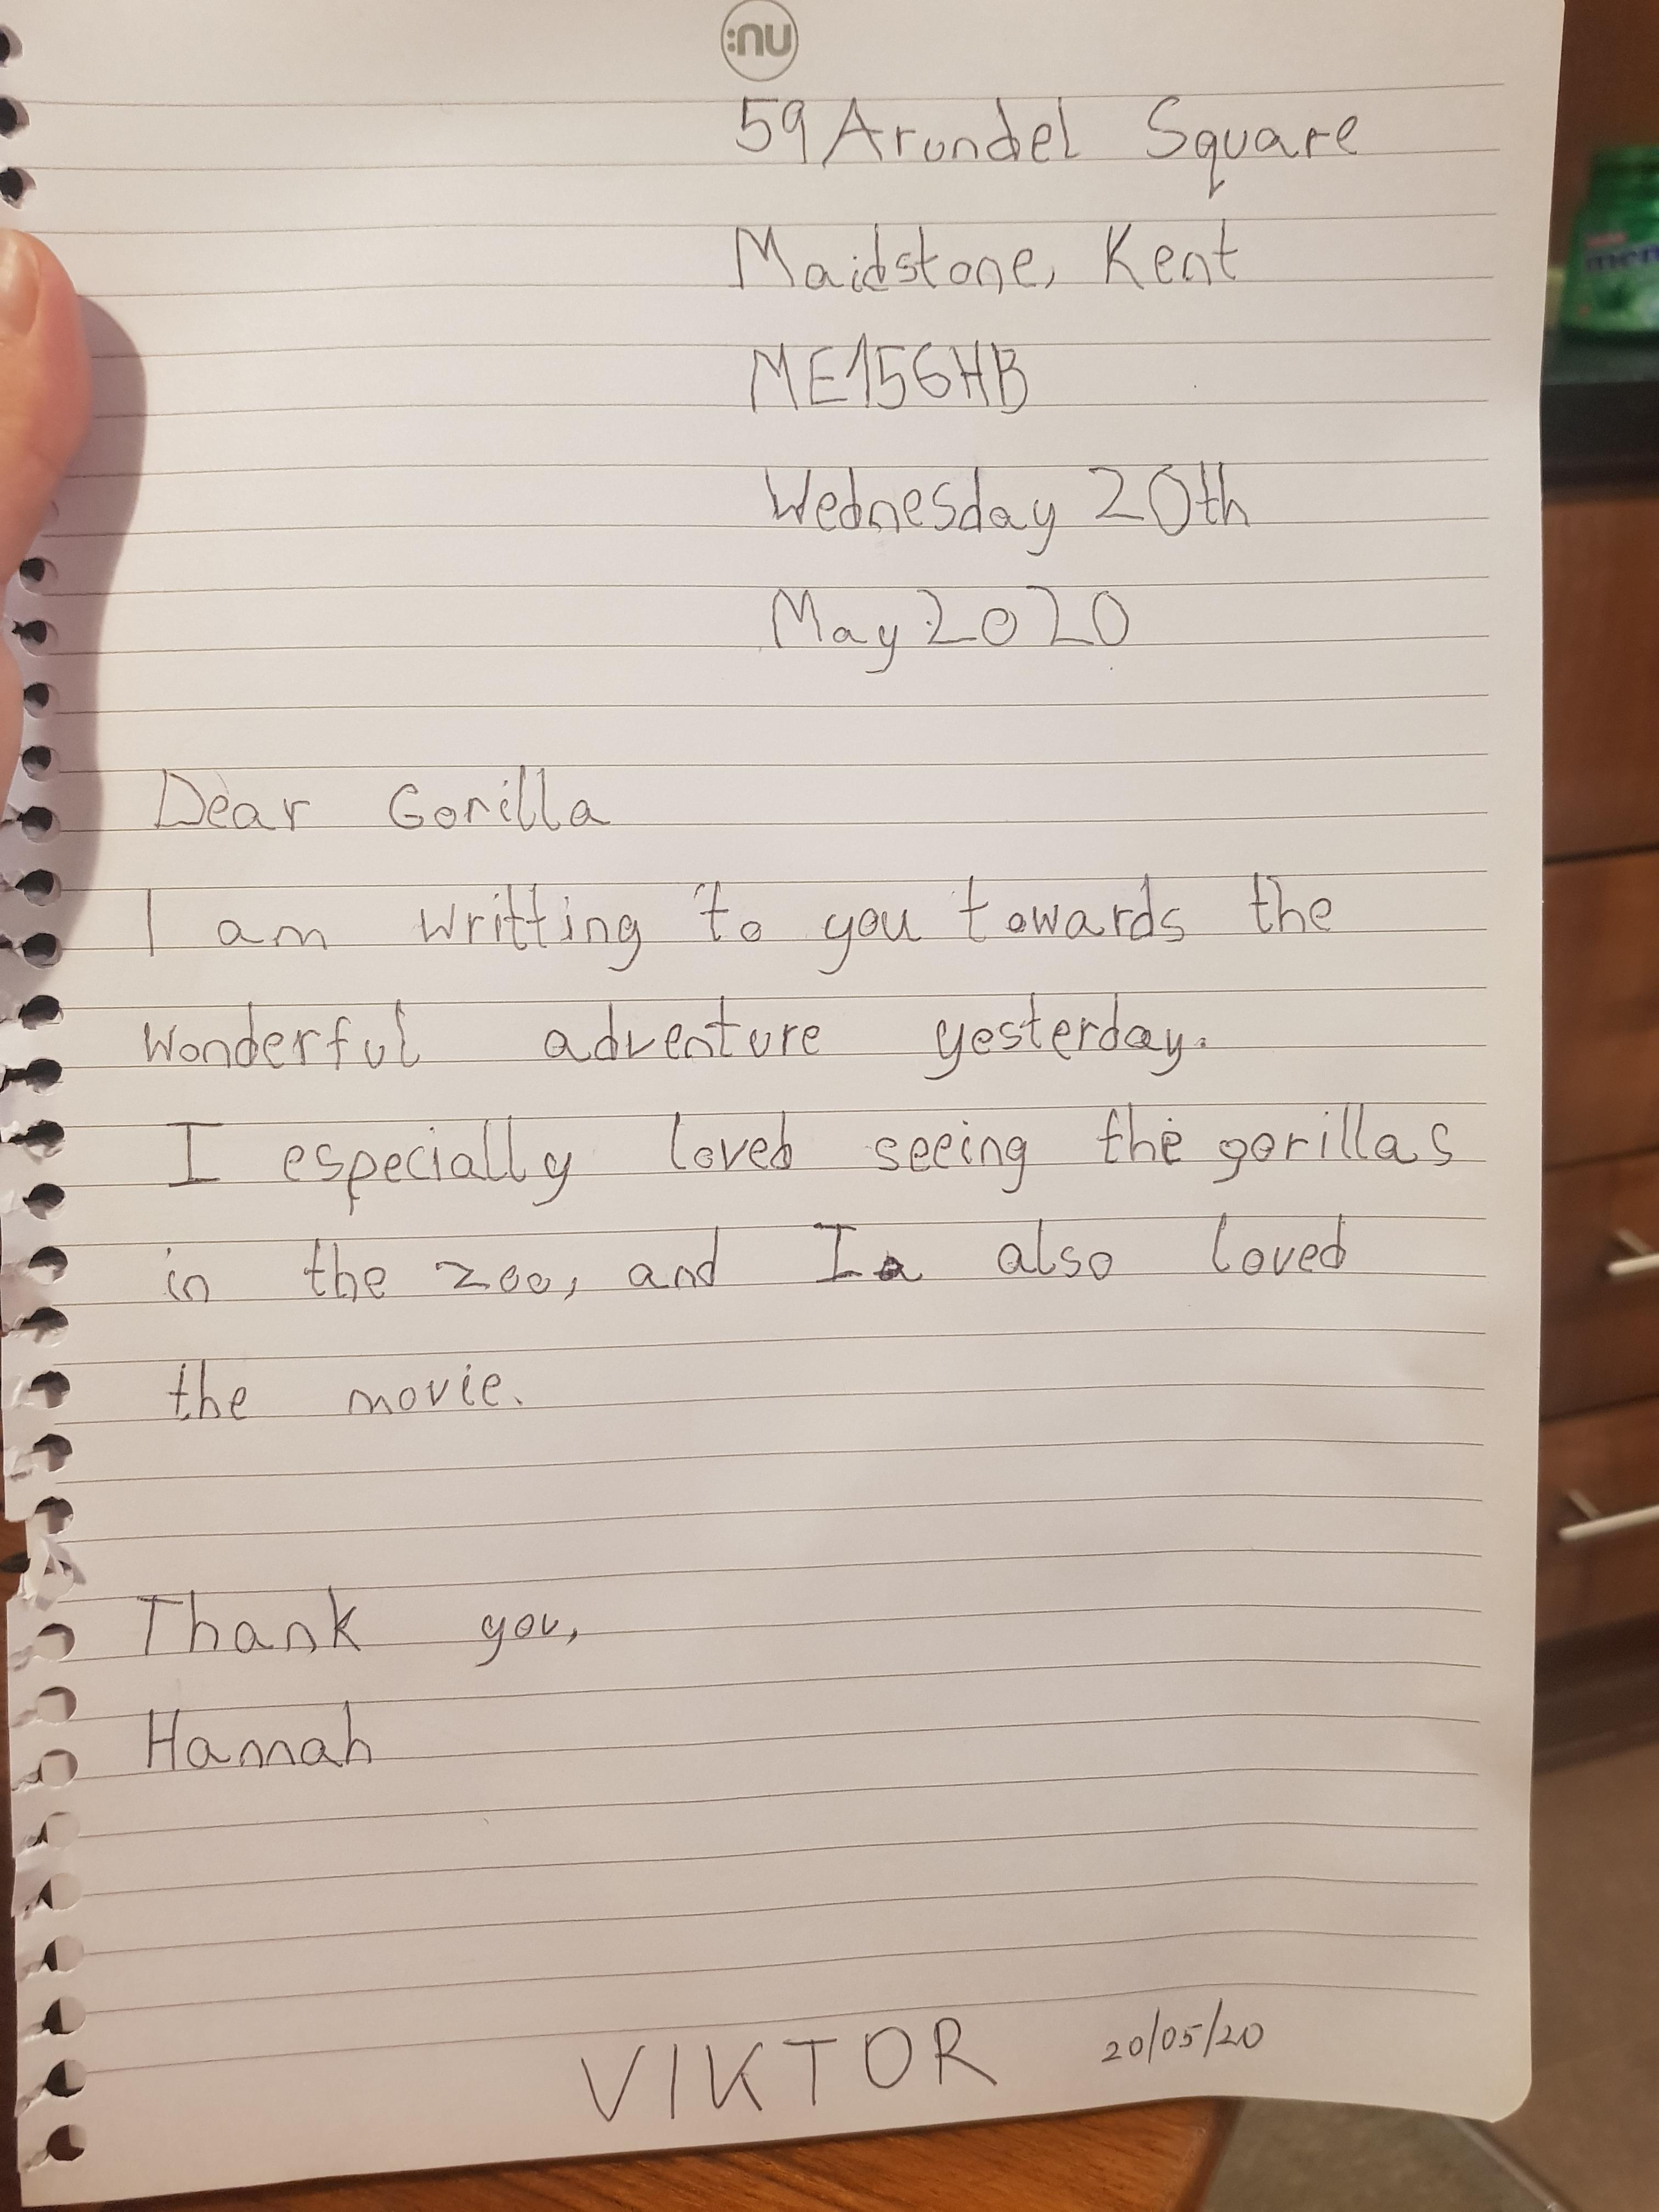 :nu
59 Arundel Square
Maidstone, Kent
ME156HB
Wednesday 20th
May 2020
Dear Gorilla
I am writting to you towards the
wonderful adventure yesterday.
I especially loved seeing the gorillas
in the zoo, and I a also loved
the movie.
Thank you,
Hannah
VIKTOR 20/05/20